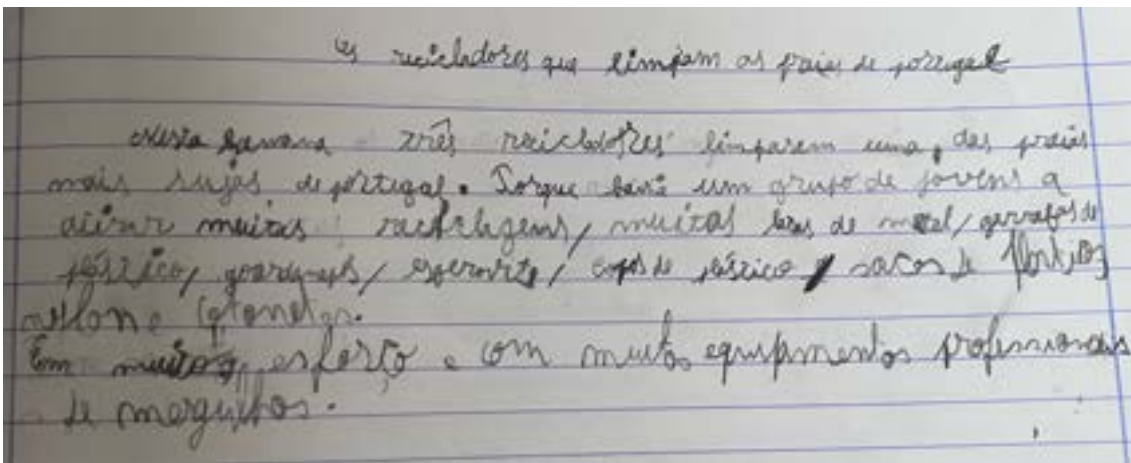 os recicladores que limpam as praies de portugal
Nesta semana três recicladores limparem uma, das praias
mais sujas de portugal. Porque um grupo de jovens a
atirar muitas / muitas latas de metal/ garrafas de
plástico/ / / copos de plástico / sacos de
e cotonetes.
Com muitos esforço e com muitos equipamentos profissionais
de mergulhos.